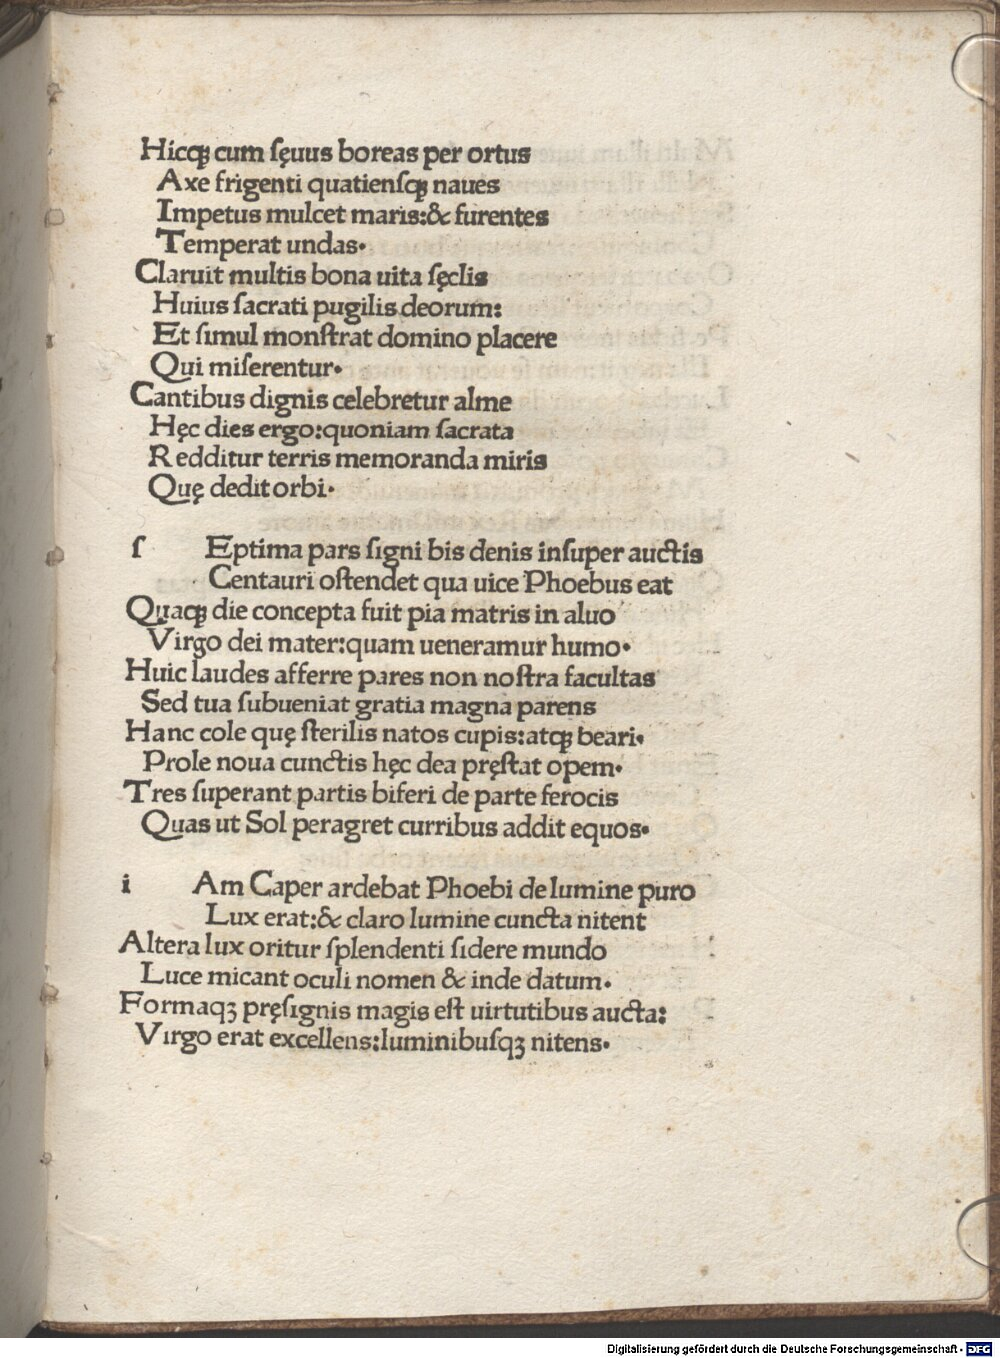 Hicꝙ cum ſęuus boreas per ortus
Axe frigenti quatienſꝙ naues
Impetus mulcet maris:& furentes
Temperat undas.
Claruit multis bona uita ſęclis
Huius ſacrati pugilis deorum:
Et ſimul monſtrat domino placere
Qui miſerentur.
Cantibus dignis celebretur alme
Hęc dies ergo:quoniam ſacrata
Redditur terris memoranda miris
Quę dedit orbi.
ſ Eptima pars ſigni bis denis inſuper auctis
Centauri oſtendet qua uice Phoebus eat
Quaꝙ die concepta fuit pia matris in aluo
Virgo dei mater:quam ueneramur humo.
Huic laudes afferre pares non noſtra facultas
Sed tua ſubueniat gratia magna parens
Hanc cole quę ſterilis natos cupis:atꝙ beari.
Prole noua cunctis hęc dea pręſtat opem.
Tres ſuperant partis biferi de parte ferocis
Quas ut Sol peragret curribus addit equos.
i Am Caper ardebat Phoebi de lumine puro
Lux erat:& claro lumine cuncta nitent
Altera lux oritur ſplendenti ſidere mundo
Luce micant oculi nomen & inde datum.
Formaqꝫ pręſignis magis eſt uirtutibus aucta:
Virgo erat excellens:luminibuſqꝫ nitens.
Digitalisierung gefördert durch die Deutsche Forschungsgemeinschaft - DFG